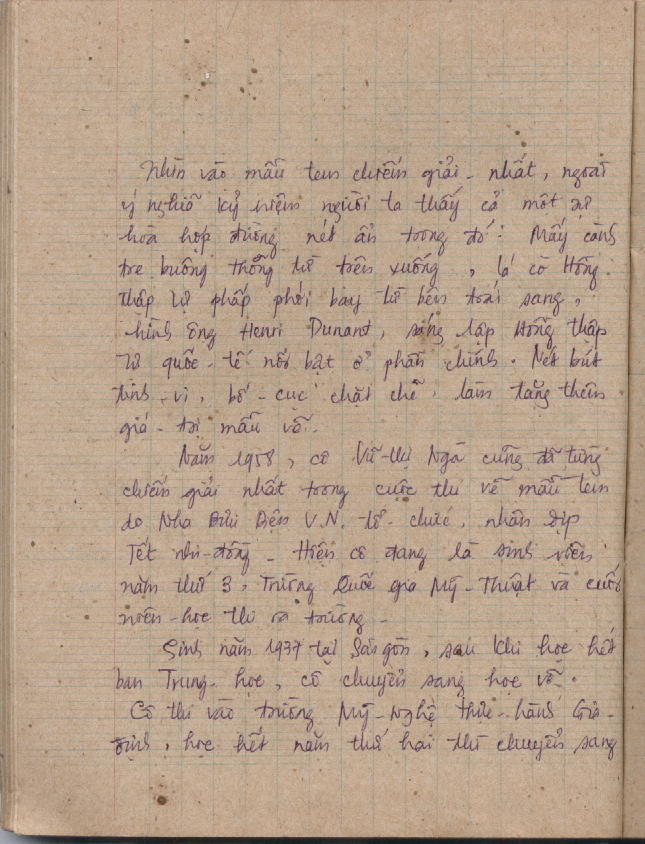 Nhìn vào mẫu tem chiếm giải-nhất, ngoài
ý nghĩa kỷ niệm người ta thấy cả một sự
hoà hợp đường nét ẩn trong đó: Mấy cành
tre buông thõng từ trên xuống, lá cờ Hồng
thập tự phấp phới bay từ bên trái sang,
hình ông Henri Dunant, sáng lập Hồng thập
tự quốc-tế nổi bật ở phần chính. Nét bút
tinh-vi, bố-cục chặt chẽ, làm tăng thêm
giá-trị mẫu vẽ.
Năm 1958, cô Vũ-thị Ngà cũng đã từng
chiếm giải nhất trong cuộc thi vẽ mẫu tem
do Nha Bưu Điện V.N. tổ-chức, nhân dịp
Tết nhi-đồng - Hiện cô đang là sinh viên
năm thứ 3, Trường Quốc gia Mỹ-Thuật và cuối
niên-học thi ra trường -
Sinh năm 1937 tại Sài gòn, sau khi học hết
ban Trung-học, cô chuyển sang học vẽ.
Cô thi vào trường Mỹ-Nghệ thực-hành Gia-
định, học hết năm thứ hai thì chuyển sang